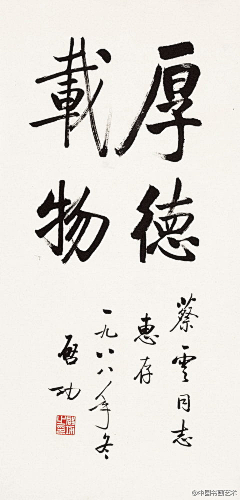 厚德
載物
蔡雲同志
惠存
一九八八年冬
啓功
@中国书画艺术